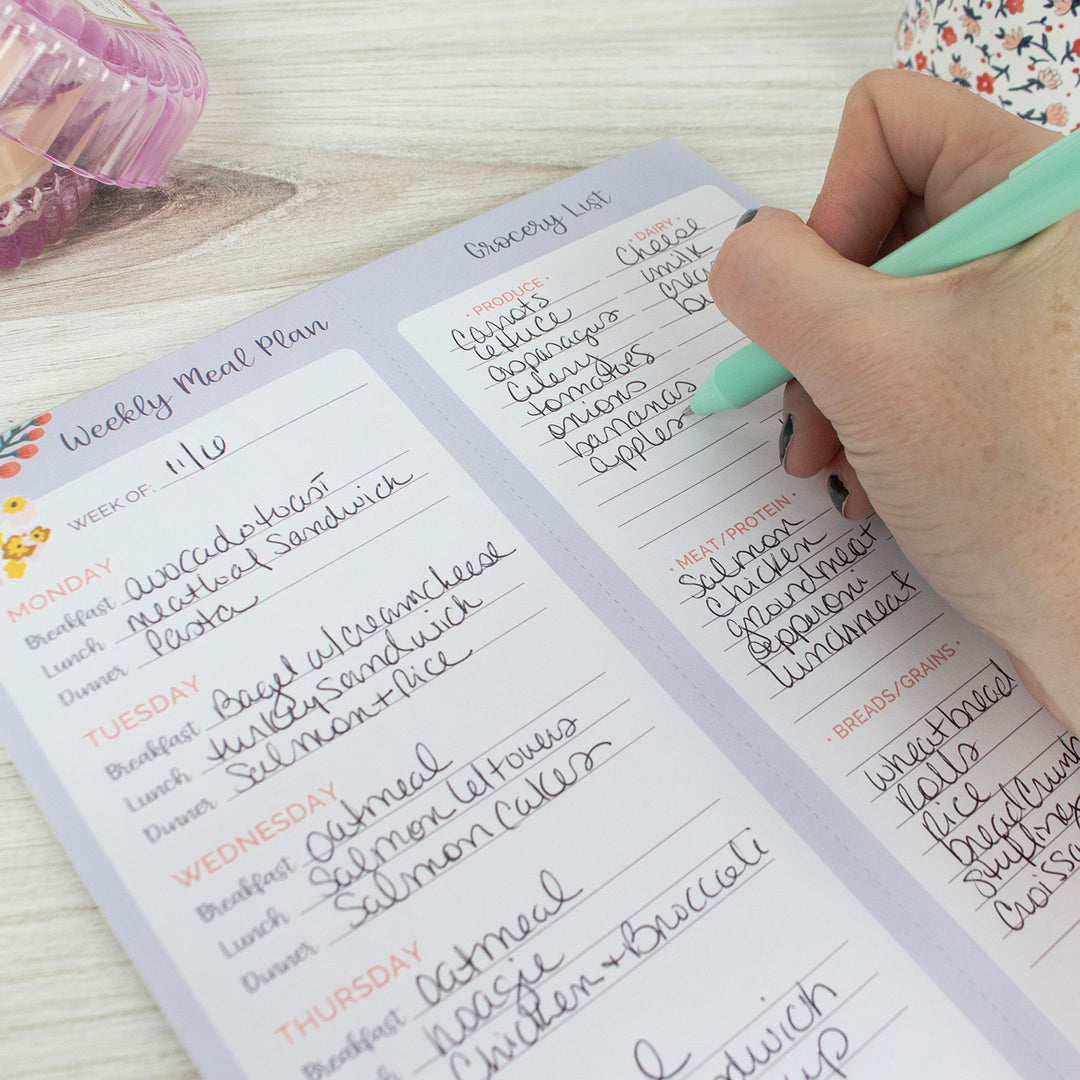 Weekly Meal Plan
WEEK OF: 11/16
MONDAY
Breakfast avocado toast
Lunch meatloaf sandwich
Dinner Pasta
TUESDAY
Breakfast Bagel w/ creamcheese
Lunch turkey sandwich
Dinner Salmon + Rice
WEDNESDAY
Breakfast Oatmeal
Lunch Salmon leftovers
Dinner Salmon Cakes
THURSDAY
Breakfast Oatmeal
hoagie
Chicken + Broccoli
Grocery List
• PRODUCE •
Carrots
lettuce
asparagus
Celery
tomatoes
onions
bananas
apples
• DAIRY •
Cheese
milk
• MEAT/PROTEIN •
Salmon
Chicken
groundmeat
Pepperoni
lunchmeat
• BREADS/GRAINS •
Wheatbread
Rolls
Rice